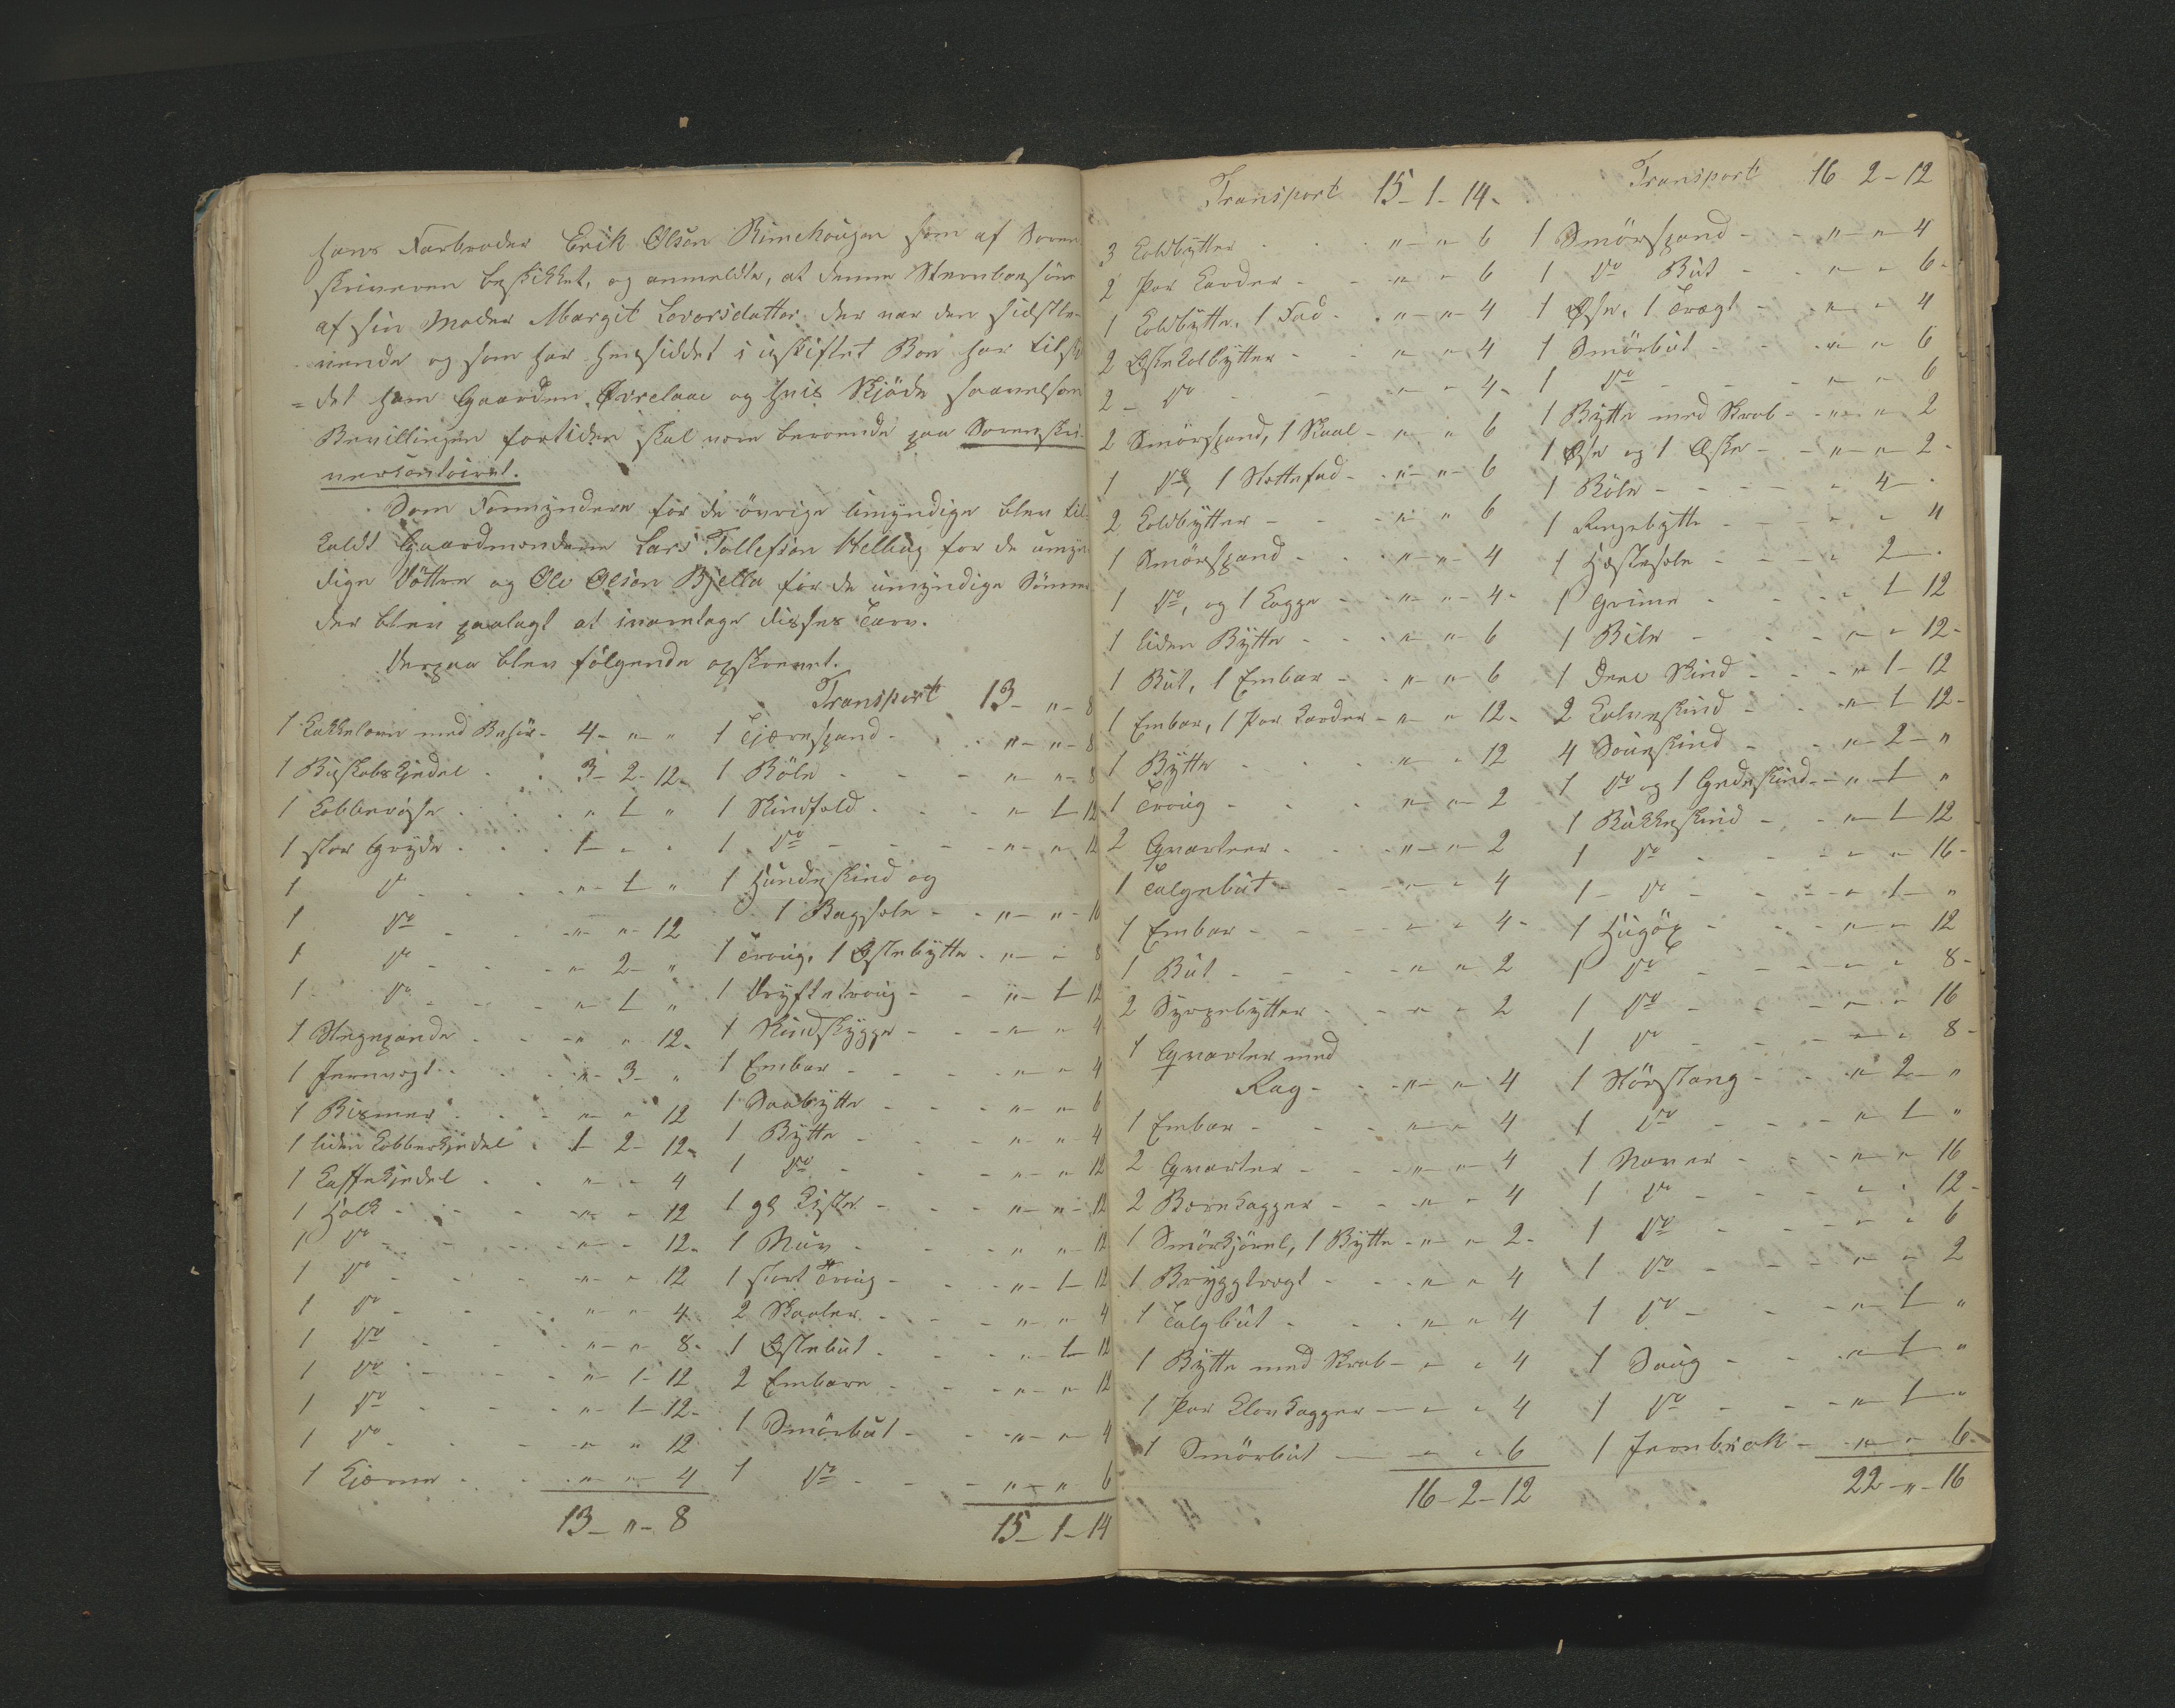 hans Farbroder Erik Olsen Rimehougen som af Soren
skriveren beskikket, og anmeldte, at denne Stervboesöns
af sin Moder Margit Lovorsdatter, der var den sidstle-
vende og som har hensiddet i uskiftet Boe har tilskjö-
=det ham Gaarden Øvrelaae og hvis Skjöde saavelsom
Bevillingen fortiden skal være beroende paa Sorenskri-
vercontoiret.
Som Formyndere for de övrige Umyndige blev til-
kaldt Gaardmændene Lars Tollefsen Helling for de umyn-
dige Döttre og Ole Olsen Bjella for de umyndige Sönner
der blev paalagt at ivaretage disses Tarv.
Derpaa blev fölgende opskrevet.
1 Kakkelovn med Rehör - 4 - " - "
1 Bryskobskjedel - 3 - 2 - 12
1 Kobberöse - " 1 "
1 stor Gryde - 1 - " "
1 Do - " - 1 "
1 Do - " - " - 12
1 Do - " 2 - "
1 Do - " 1 "
1 Stegepande - " " 12
1 Jernvægt - " - 3 - "
1 Bismer - " - " 12
1 liden Kobberkjedel 1 - 2 - 12
1 Kaffekjedel - " - 4
1 Holk - " - " 12
1 Do - " - " 12
1 Do - " - " 12
1 Do - " - " 4
1 Do - " - " 8
1 Do - " - 1 - 12
1 Do - " - 1 - 12
1 Do - " " 12
1 Kjerne - " - " 4
13 - " - 8
Transport 13 - " - 8
1 Tjærespand - " - " - 8
1 Böle - " - " - 8
1 Skindfeld - " 1 - 12
1 Do - " - " 12
1 Hundeskind og
1 Bagsele - " - " - 16
1 Troug, 1 Ostebytte - " - " 8
1 Dryftetroug - " - 1 - 12
1 Skindhygge - " - " 4
1 Embar - " - " 4
1 Saabytte - " - " 6
1 Bytte - " - " 4
1 Do - " - " 12
1 gl Kiste - " - " - 12
1 Do - " - " 12
1 stort Troug - " - 1 - 12
2 Skaaler - " - " 4
1 Ostebut - " 1 - 12
2 Embare - " - " 12
1 Smörbut - " - " 4
1 Do - " - " 6
15 - 1 - 14
Transport 15 - 1 - 14
3 Koldbytter - " - " 6
2 Par Karder - " - " 6
1 Koldbytte, 1 Fad - " - " 4
2 Øskekolbytter - " - " 4
2 - Do - " - " 4
2 Smörspand, 1 Skaal - " - " 6
1 Do, 1 Slettefad - " - " 6
2 Koldbytter - " - " 6
1 Smörspand - " - " 4
1 Do, og 1 Kagge - " - " 4
1 liden Bytte - " - " 6
1 But, 1 Embar - " - " 6
1 Embar, 1 Par Karder - " - " 12
1 Bytte - " - " 12
1 Troug - " - " 2
2 Qvarteer - " - " 2
1 Talgebut - " - " 4
1 Embar - " - " 4
1 But - " - " 2
2 Syrpebytter - " - " 2
1 Qvarter med
Rag - " - " 4
1 Embar - " - " 4
2 Qvarter - " - " 4
2 Bærekagger - " - " 4
1 Smörkjörel, 1 Bytte - " - " 2
1 Bryggtragt - " - " 4
1 Talgbut - " - " 4
1 Bytte med Skrab - " - " 4
1 Par Klovkagger - " - " 4
1 Smörbut - " - " 6
16 - 2 - 12
Transport 16 2 - 12
1 Smörspand - " - " 4
1 Do But - " - " 6
1 Øse, 1 Tragt - " - " 4
1 Smörbut - " - " 6
1 Do - " - " 6
1 Bytte med Skrab - " - " 2
1 Øse og 1 Æske - " - " 2
1 Böle - " 4
1 Ringebytte - " - " 4
1 Hestesele - " 2 - "
1 Grime - " 1 - 12
1 Bile - " - " 12
1 Deel Skind - " 1 - 12
2 Kalveskind - " 1 - 12
4 Soueskind - " - 2 - "
1 Do og 1 Gedeskind - " - 1 "
1 Bukkeskind - " 1 - 12
1 Do - " - " 16
1 - Do - " 1 - "
1 Hugöx - " - " 12
1 Do - " - " 8
1 Do - " - " 16
1 Do - " - " 8
1 Störstang - " 2 - "
1 Do - " 1 "
1 Naver - " - " 16
1 Do - " " 12
1 Do - " - " 6
1 Do - " - " 2
1 Do - " 1 "
1 Saug - " 1 "
1 Do - " 1 "
1 Jernbrek - " - " 6
22 - " - 16